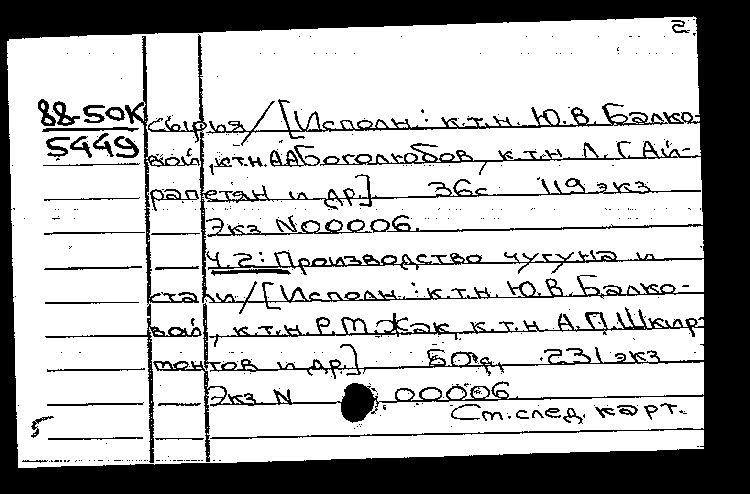 2
88-50К сырья/[Исполн.: к.т.н. Ю.В. Балко-
5449 вой, к.т.н. А.А Боголюбов, к.т.н Л.Г Ай-
рапетян и др.] 36с 119 экз
Экз N00006.
Ч.2: Производство чугуна и
стали/[Исполн.: к.т.н. Ю.В. Балко-
вой, к.т.н. Р.М. Жак, к.т.н. А.П. Шкир-
монтов и др.] 50с, 231 экз
Экз N 00006
Ст. след. карт.
5